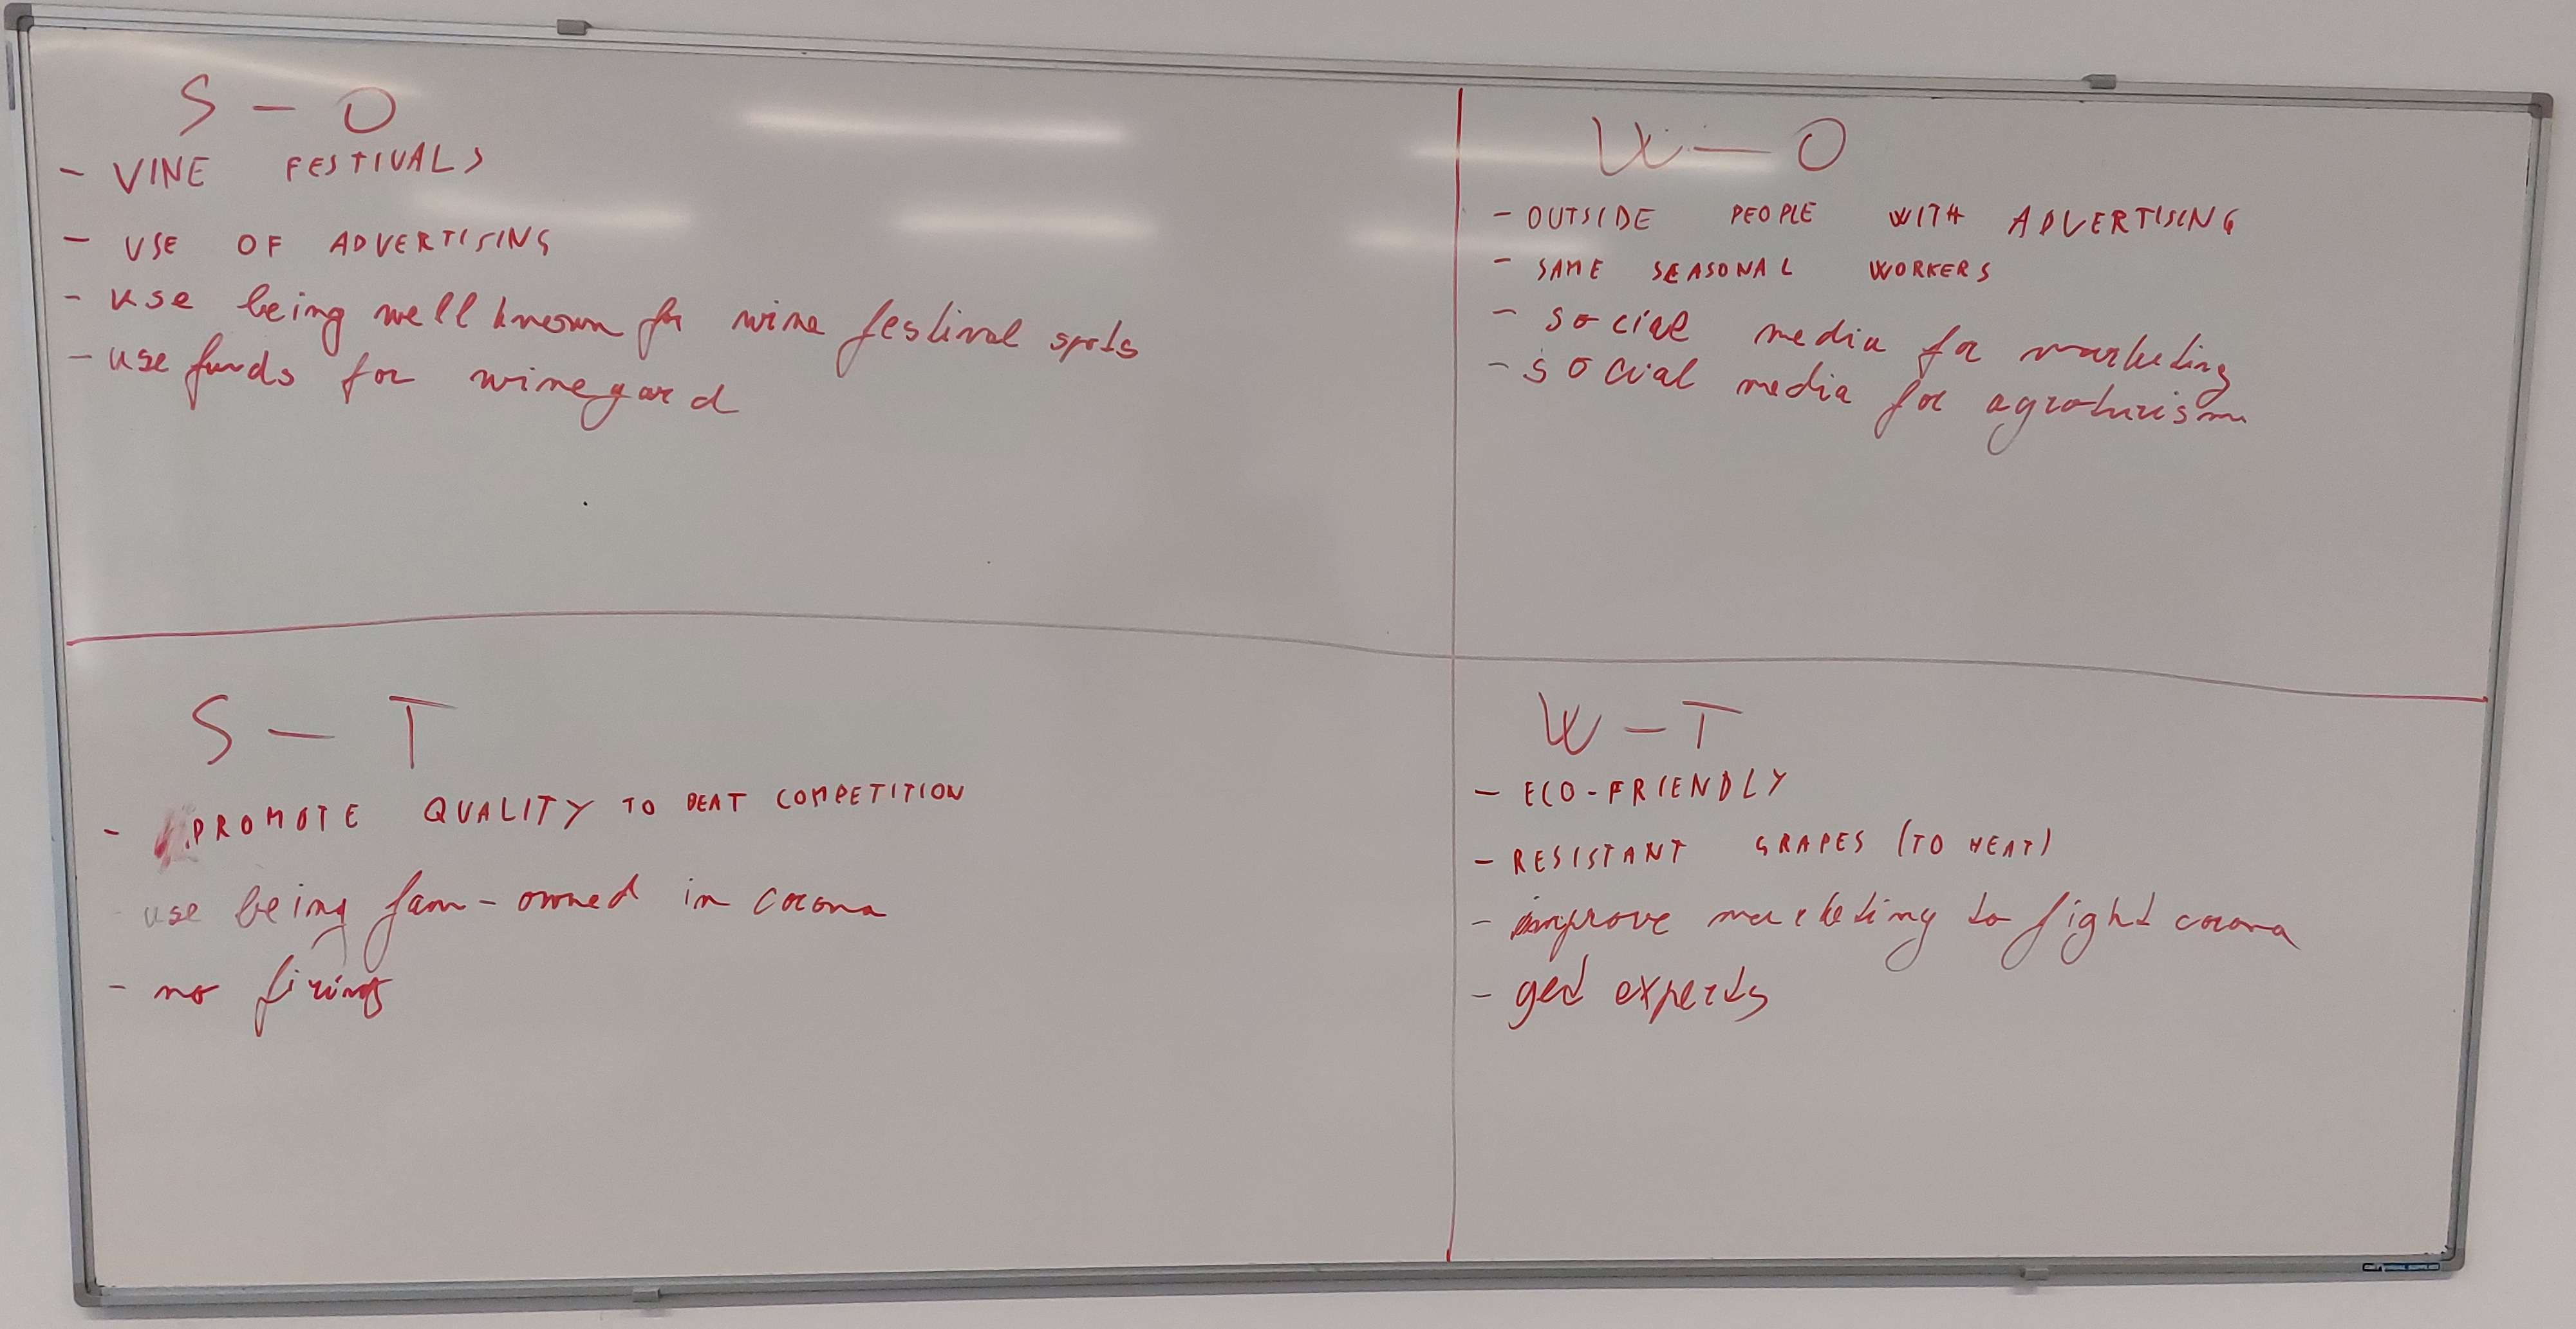 S - O
- VINE FESTIVALS
- USE OF ADVERTISING
- use being well known for wine festival spots
- use funds for winegard
W - O
- OUTSIDE PEOPLE WITH ADVERTISING
- SAME SEASONAL WORKERS
- social media for marketing
- social media for agroturism
S - T
- PROMOTE QUALITY TO BEAT COMPETITION
- use being fam-owned in corona
- no firings
W - T
- ECO-FRIENDLY
- RESISTANT GRAPES (TO HEAT)
- improve marketing to fight corona
- get experts